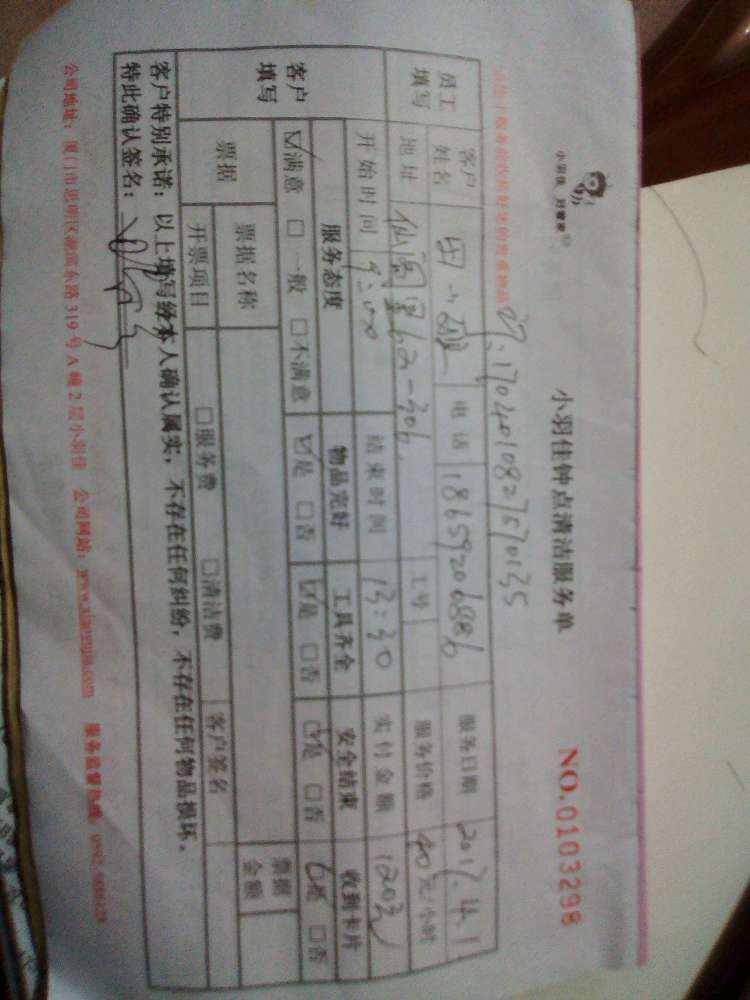 小羽佳 好管家
小羽佳钟点清洁服务单
NO.0103298
170401082570135
员工填写 客户姓名 田 电话 18659206886 服务日期 2017.4.1
地址 仙阁里62-306 工号 服务价格 40元/小时
开始时间 9:00 结束时间 13:30 实付金额 120元
客户填写 服务态度 物品完好 工具齐全 安全结束 收到卡片
☑满意 □一般 □不满意 ☑是 □否 ☑是 □否 ☑是 □否 是 □否
票据 票据名称 票据金额
开票项目 □服务费 □清洁费 客户签名
客户特别承诺：以上填写经本人确认属实，不存在任何纠纷，不存在任何物品损坏。
特此确认签名：
公司地址：厦门市思明区湖滨东路319号A幢2层小羽佳 公司网站：www.xiaoyujia.com 服务监督热线：